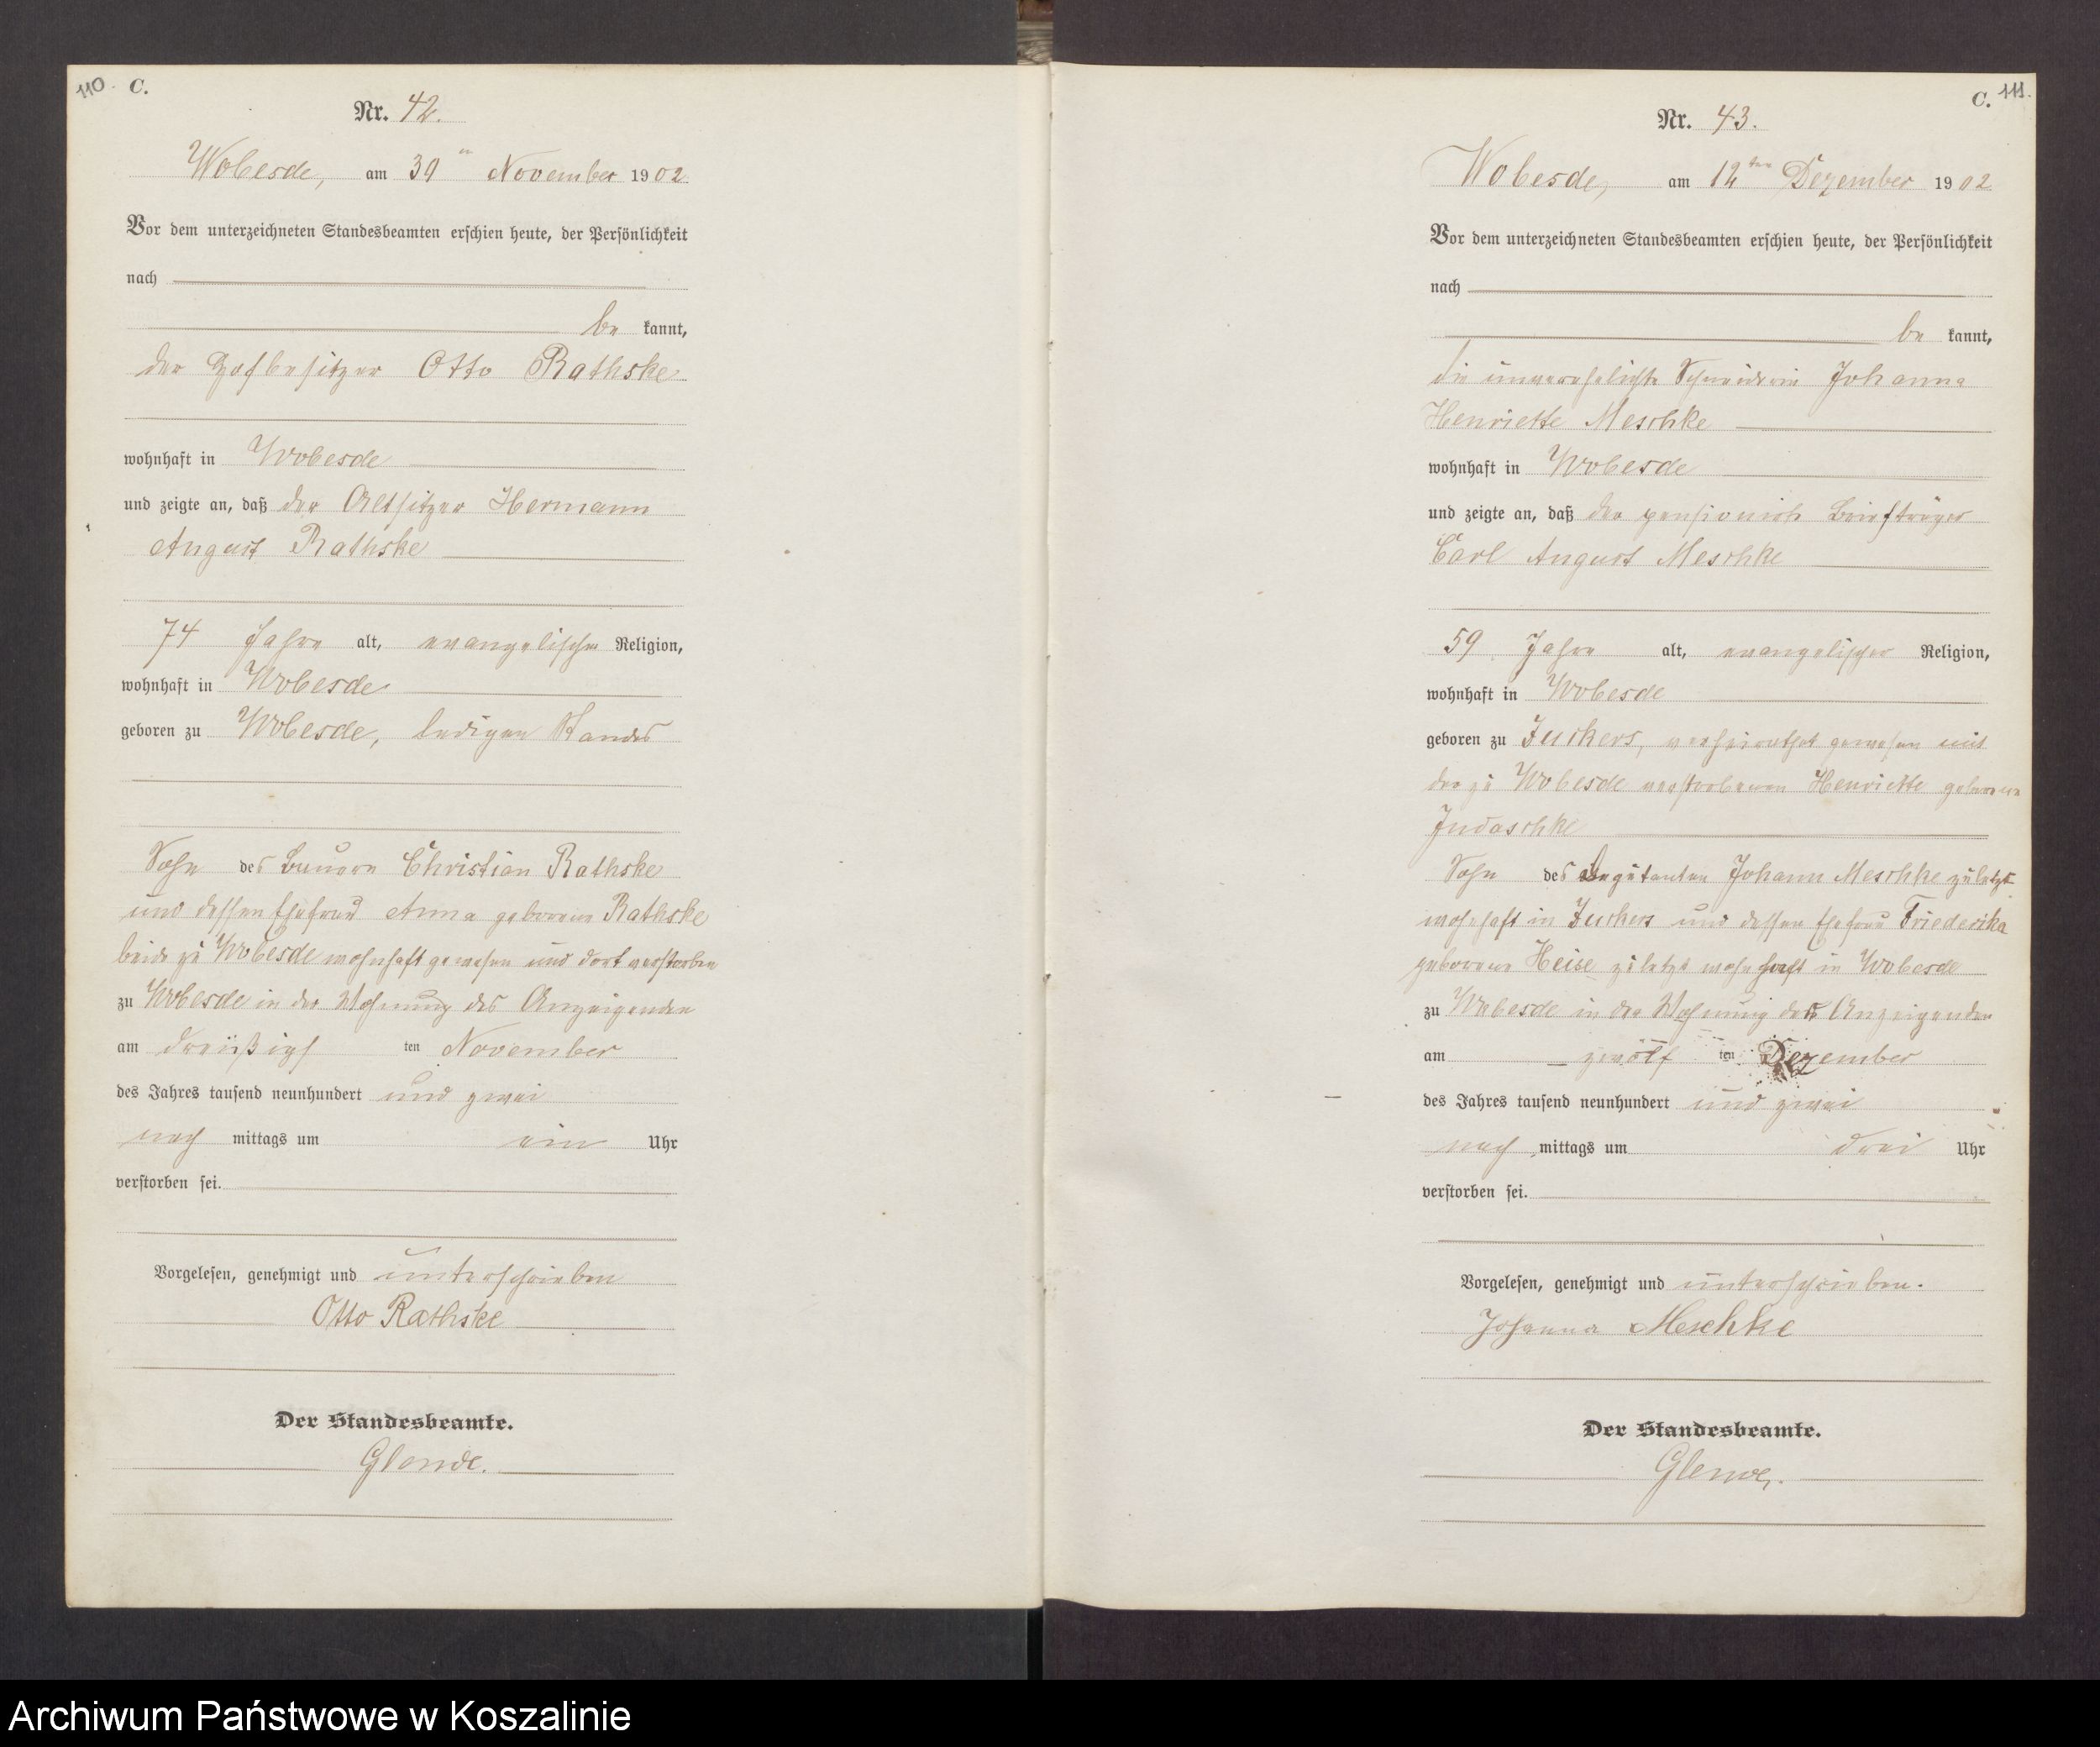 110. C.
Nr. 42.
Wobesde, am 30 ten November 1902
Vor dem unterzeichneten Standesbeamten erschien heute, der Persönlichkeit
nach
be kannt,
der Hofbesitzer Otto Rathske
wohnhaft in Wobesde
und zeigte an, daß der Altsitzer Hermann
August Rathske
74 Jahre alt, evangelischer Religion,
wohnhaft in Wobesde
geboren zu Wobesde, ledigen Standes
Sohn des Bauern Christian Rathske
und dessen Ehefrau Anna geborene Rathske
beide zu Wobesde wohnhaft gewesen und dort verstorben
zu Wobesde in der Wohnung des Anzeigenden
am dreißigs ten November
des Jahres tausend neunhundert und zwei
nach mittags um ein Uhr
verstorben sei.
Vorgelesen, genehmigt und unterschrieben
Otto Rathske
Der Standesbeamte.
Glende.
C. 111.
Nr. 43.
Wobesde, am 12ten Dezember 1902
Vor dem unterzeichneten Standesbeamten erschien heute, der Persönlichkeit
nach
be kannt,
die unverehelichte Schneiderin Johanna
Henriette Meschke
wohnhaft in Wobesde
und zeigte an, daß der Briefträger
Carl August Meschke
59 Jahre alt, evangelischer Religion,
wohnhaft in Wobesde
geboren zu Zuckers, verheirathet gewesen mit
der zu Wobesde verstorbenen Henriette geborene
Judaschke
Sohn des Johann Meschke zuletzt
wohnhaft in Zuckers und dessen Ehefrau Friederika
geborene Heise zuletzt wohnhaft in Wobesde
zu Wobesde in der Wohnung der Anzeigenden
am zwölf ten Dezember
des Jahres tausend neunhundert und zwei
nach mittags um drei Uhr
verstorben sei.
Vorgelesen, genehmigt und unterschrieben.
Johanna Meschke
Der Standesbeamte.
Glende.
Archiwum Państwowe w Koszalinie